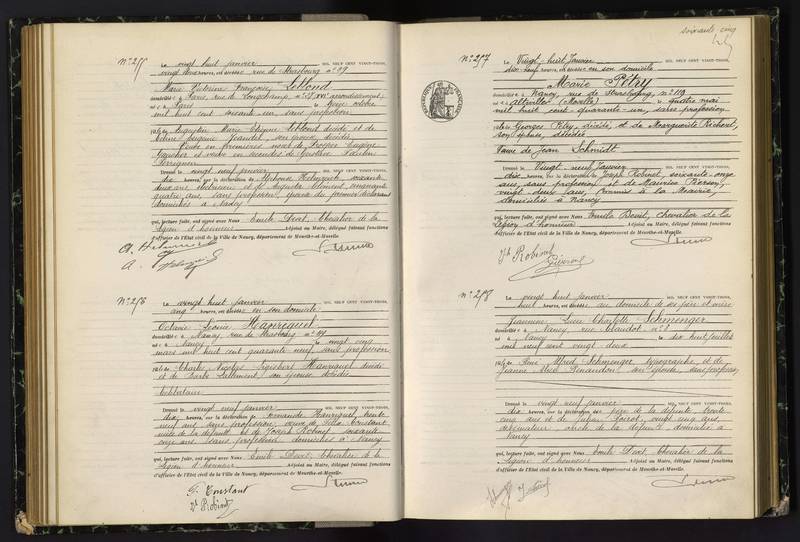 N° 275 Le vingt huit janvier MIL NEUF CENT VINGT-TROIS,
vingt heures, est décédée rue de Strasbourg n° 99
Marie Victorine Françoise Leblond
domiciliée à Paris, rue de Longchamp, XVIe arrondissement,
née à Paris le octobre
mil huit cent soixante un, sans profession
fille de Augustin Marie Etienne Leblond décédé et de
son épouse, décédée
Veuve en premières noces de Prosper Eugène
et veuve en secondes de Gustave
Dressé le vingt neuf janvier MIL NEUF CENT VINGT-TROIS,
dix heures, sur la déclaration de Alphonse soixante
deux ans et de Auguste Clément, cinquante
quatre ans, sans profession, du premier déclarant
domiciliés à Nancy
qui, lecture faite, ont signé avec Nous Emile Devit, Chevalier de la
Légion d'honneur Adjoint au Maire, délégué faisant fonctions
d'officier de l'Etat civil de la Ville de Nancy, département de Meurthe-et-Moselle.
N° 276 Le vingt huit janvier MIL NEUF CENT VINGT-TROIS,
cinq heures, est décédée en son domicile
Octavie Léonie Hanriquel
domiciliée à Nancy, rue de Strasbourg n° 119
née à Nancy le vingt cinq
mars mil huit cent quarante neuf, sans profession
fille de Charles Nicolas Sigisbert Hanriquel décédé
et de Barbe Lallement, son épouse décédée
Célibataire
Dressé le vingt neuf janvier MIL NEUF CENT VINGT-TROIS,
dix heures, sur la déclaration de Hanriquel, trente
neuf ans, sans profession, veuve de Félix Constant
nièce de la défunte et de Joseph Robinet soixante
onze ans, sans profession, domiciliés à Nancy
qui, lecture faite, ont signé avec Nous Emile Devit, Chevalier de la
Légion d'honneur Adjoint au Maire, délégué faisant fonctions
d'officier de l'Etat civil de la Ville de Nancy, département de Meurthe-et-Moselle.
Constant
Jh Robinet
soixante cinq
N° 277 Le Vingt-huit Janvier MIL NEUF CENT VINGT-TROIS,
dix-neuf heures, est décédée en son domicile
Marie Pétry
domiciliée à Nancy, rue de Strasbourg, n° 119
née à (Moselle) le quatre mai
mil huit cent quarante-un, sans profession
fille de Georges Pétry, décédé, et de Marguerite Richard,
son épouse, décédée
Veuve de Jean Schmidt
Dressé le Vingt neuf Janvier MIL NEUF CENT VINGT-TROIS,
dix heures, sur la déclaration de Joseph Robinet, soixante-onze
ans, sans profession et de Maurice Pierson,
vingt deux ans, commis à la Mairie,
domiciliés à Nancy
qui, lecture faite, ont signé avec Nous Emile Devit, chevalier de la
Légion d'honneur Adjoint au Maire, délégué faisant fonctions
d'officier de l'Etat civil de la Ville de Nancy, département de Meurthe-et-Moselle.
Jh Robinet
N° 278 Le vingt huit janvier MIL NEUF CENT VINGT-TROIS,
huit heures, est décédée au domicile de ses père et mère
Jeannine Lucie Charlotte Schmenger
domiciliée à Nancy, rue Claudot n° 8
née à Nancy le dix huit juillet
mil neuf cent vingt deux
fille de René Alfred Schmenger, typographe et de
Jeanne Renaudin, son épouse, sans profession,
Dressé le vingt neuf janvier MIL NEUF CENT VINGT-TROIS,
dix heures, sur la déclaration du père de la défunte, trente
cinq ans et de Julien Poirot, vingt cinq ans
oncle de la défunte domiciliés à
Nancy
qui, lecture faite, ont signé avec Nous Emile Devit, Chevalier de la
Légion d'honneur Adjoint au Maire, délégué faisant fonctions
d'officier de l'Etat civil de la Ville de Nancy, département de Meurthe-et-Moselle.